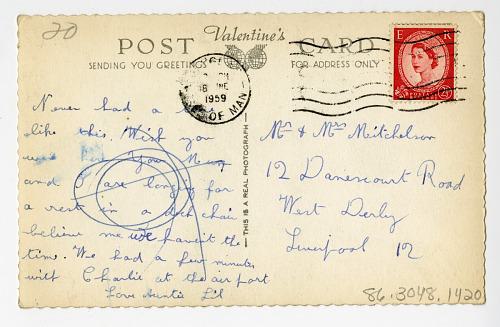 20
Valentine's
POST CARD
SENDING YOU GREETINGS
FOR ADDRESS ONLY
E R
1959
OF MAN
THIS IS A REAL PHOTOGRAPH
Never had a
like this. Wish you
were here your
and I are longing for
a rest in a deck chair
believe me we haven't the
time. We had a few minutes
with Charlie at the airport
Love Auntie Lil
Mr & Mrs Mitchelson
12 Danescourt Road
West Derby
Liverpool 12
86.3048.1420